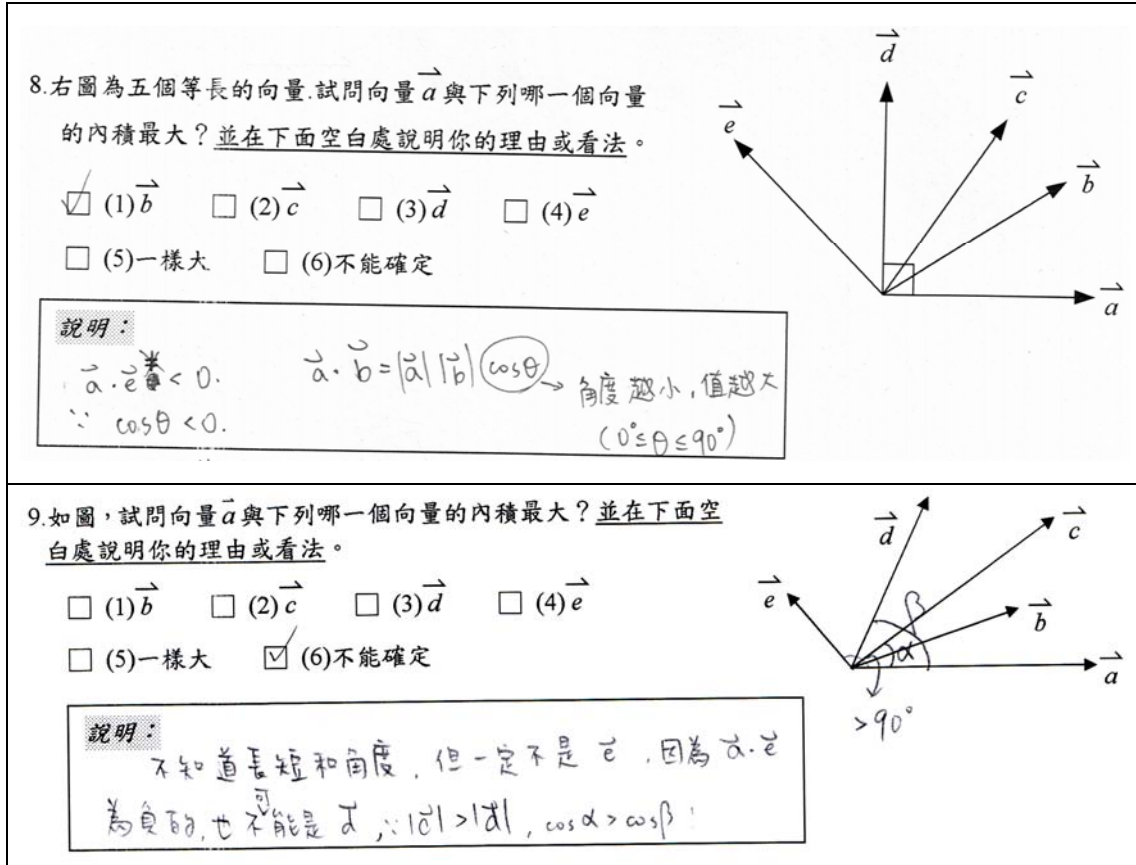 8.右圖為五個等長的向量.試問向量a⃗與下列哪一個向量
的內積最大？並在下面空白處說明你的理由或看法。
☑ (1)b⃗ □ (2)c⃗ □ (3)d⃗ □ (4)e⃗
□ (5)一樣大 □ (6)不能確定
說明：
a⃗·e⃗ < 0.
∵ cosθ < 0.
a⃗·b⃗ = |a⃗| |b⃗| cosθ → 角度越小，值越大
(0°≤θ≤90°)
e⃗
d⃗
c⃗
b⃗
a⃗
9.如圖，試問向量a⃗與下列哪一個向量的內積最大？並在下面空
白處說明你的理由或看法。
□ (1)b⃗ □ (2)c⃗ □ (3)d⃗ □ (4)e⃗
□ (5)一樣大 ☑ (6)不能確定
說明：
不知道長短和角度，但一定不是 e⃗，因為 a⃗·e⃗
為負的，也不可能是 d⃗，∵|c⃗|>|d⃗|, cosα>cosβ
e⃗
d⃗
c⃗
b⃗
a⃗
β
α
>90°